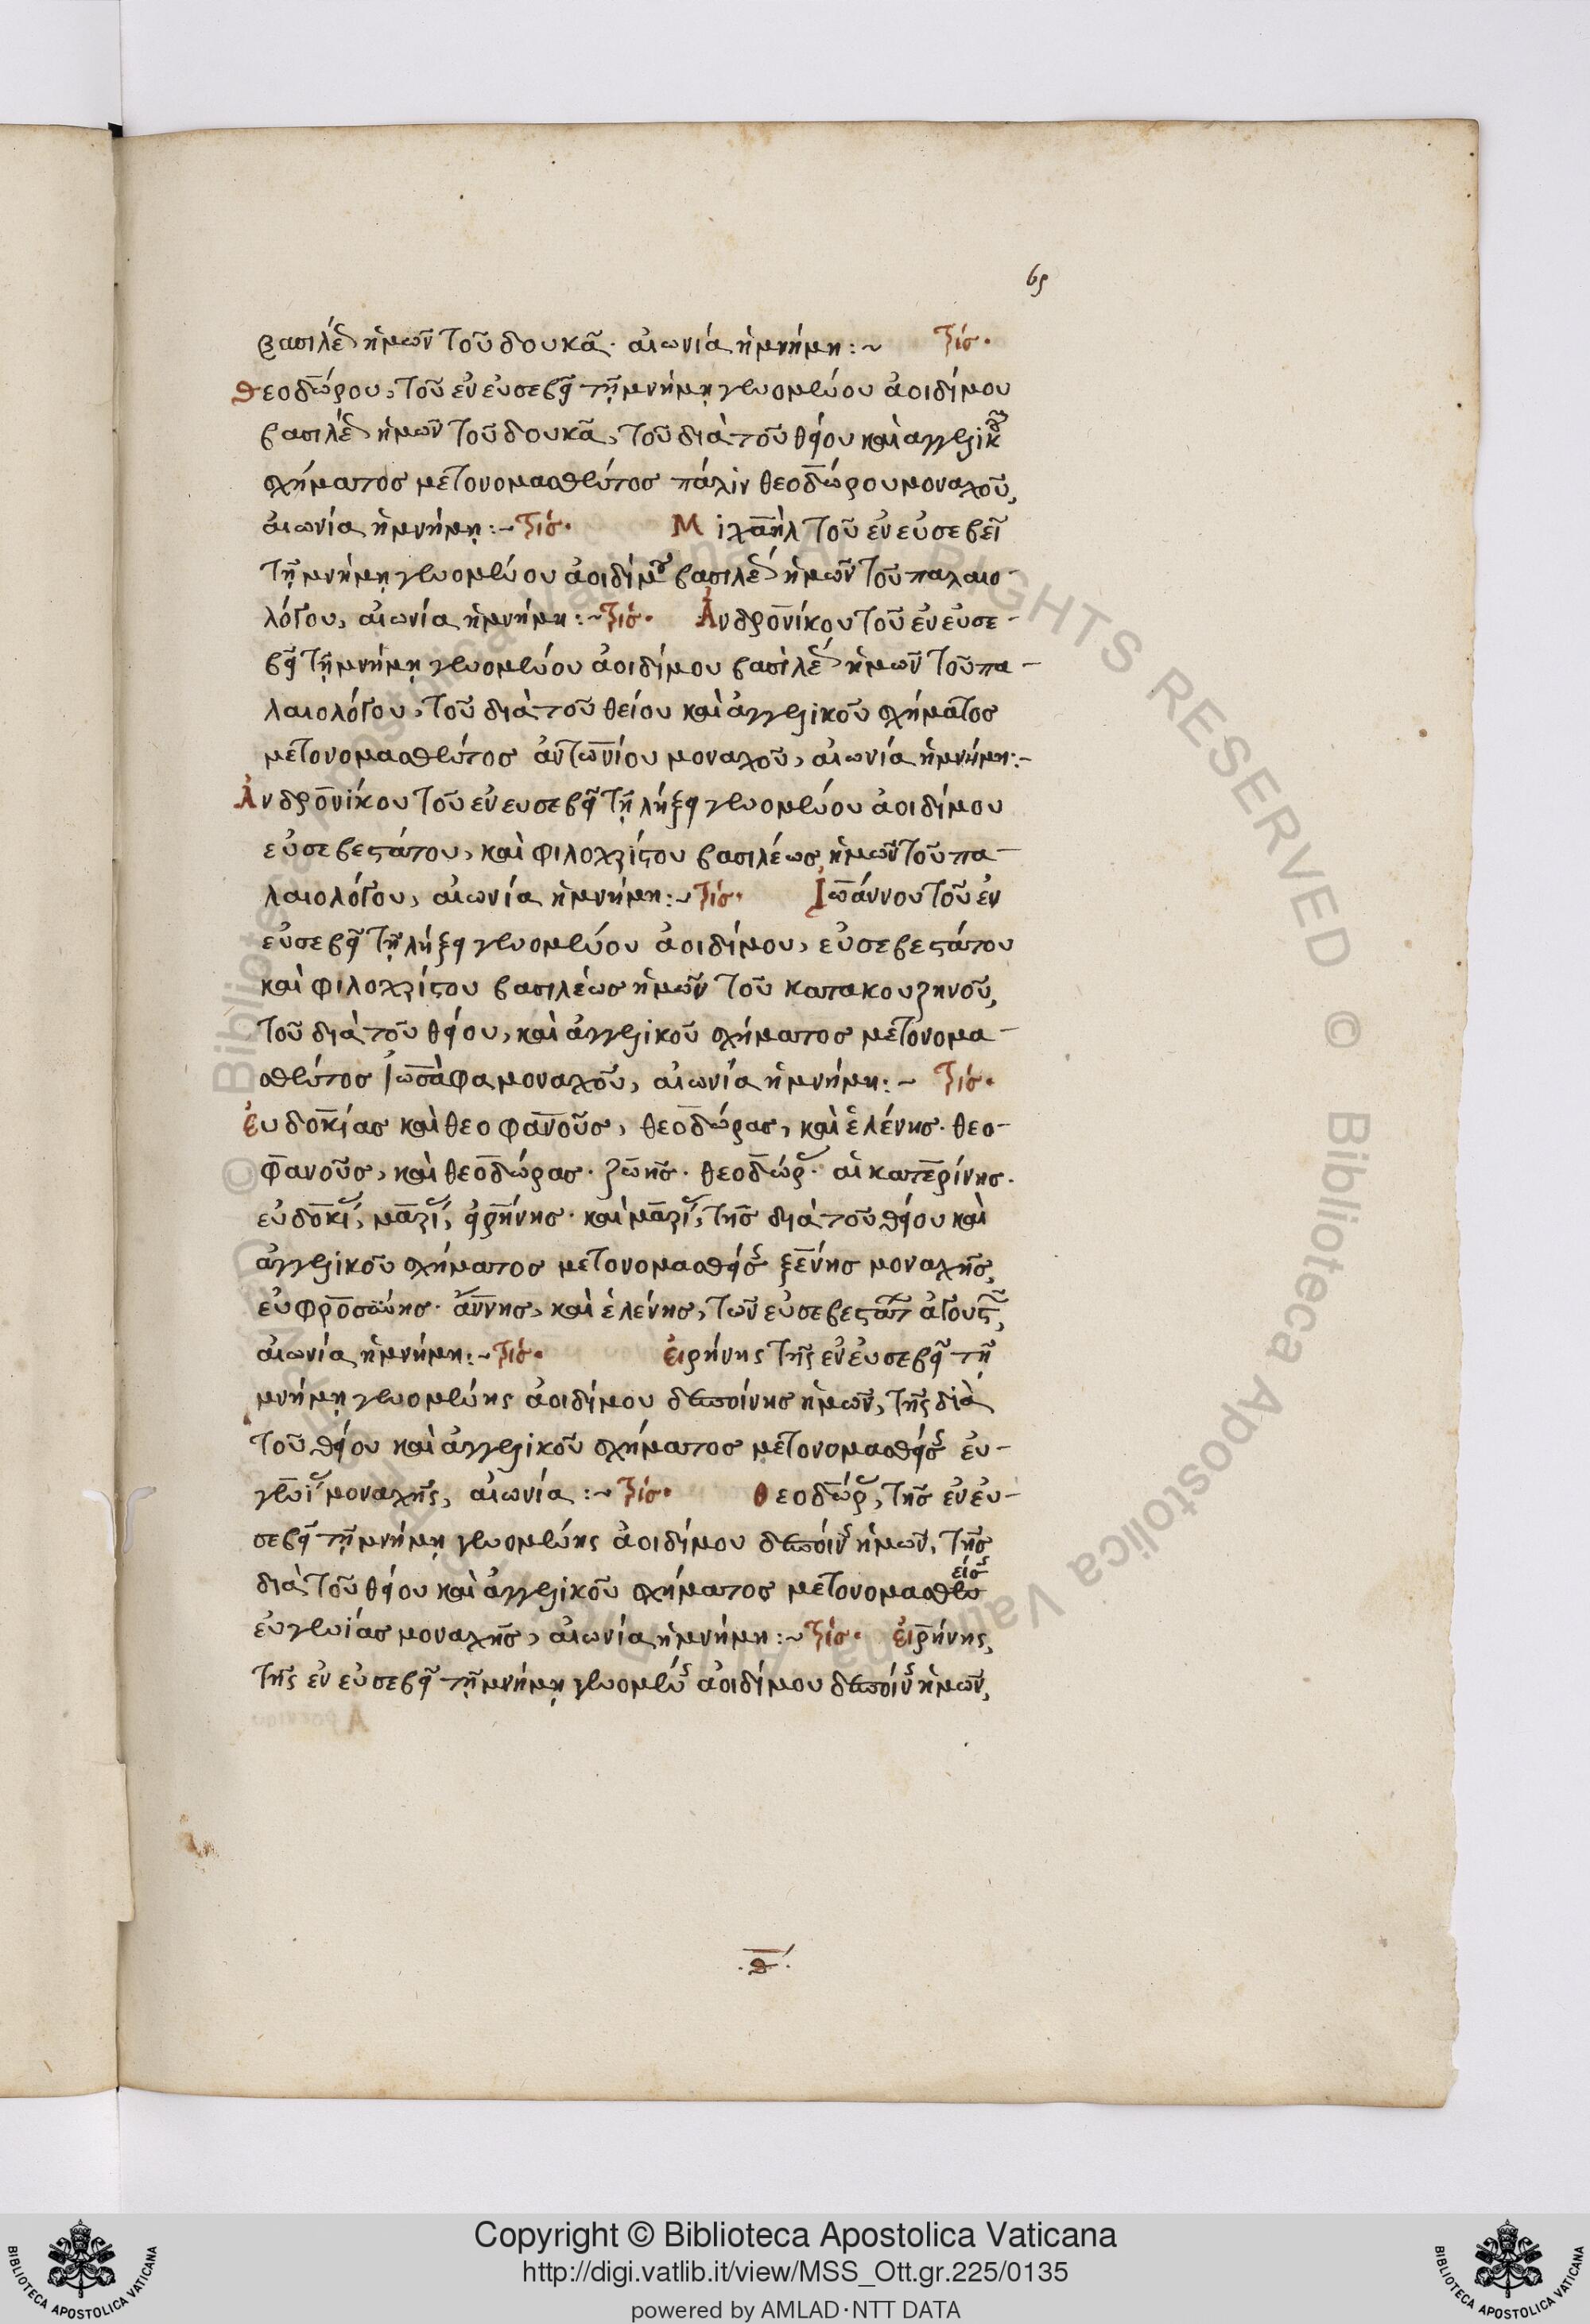 65
βασιλέ ἡμῶν τοῦ δουκᾶ· αἰωνία ἡ μνήμη:~ τρίς·
Θεοδώρου, τοῦ ἐν εὐσεβεῖ τῇ μνήμῃ γενομένου ἀοιδίμου
βασιλέ ἡμῶν τοῦ δουκᾶ, τοῦ διὰ τοῦ θείου καὶ ἀγγελικοῦ
σχήματος μετονομασθέντος πάλιν θεοδώρου μοναχοῦ,
αἰωνία ἡ μνήμη:~ τρίς· Μιχαὴλ τοῦ ἐν εὐσεβεῖ
τῇ μνήμῃ γενομένου ἀοιδίμου βασιλέ ἡμῶν τοῦ παλαιο-
λόγου, αἰωνία ἡ μνήμη:~ τρίς· Ἀνδρονίκου τοῦ ἐν εὐσε-
βεῖ τῇ μνήμῃ γενομένου ἀοιδίμου βασιλέ ἡμῶν τοῦ πα-
λαιολόγου, τοῦ διὰ τοῦ θείου καὶ ἀγγελικοῦ σχήματος
μετονομασθέντος ἀντωνίου μοναχοῦ, αἰωνία ἡ μνήμη:-
Ἀνδρονίκου τοῦ ἐν ευσεβεῖ τῇ λήξει γενομένου ἀοιδίμου
εὐσεβεστάτου, καὶ φιλοχρίστου βασιλέως ἡμῶν τοῦ πα-
λαιολόγου, αἰωνία ἡ μνήμη:~ τρίς· Ἰωάννου τοῦ ἐν
εὐσεβεῖ τῇ λήξει γενομένου ἀοιδίμου, εὐσεβεστάτου
καὶ φιλοχρίστου βασιλέως ἡμῶν τοῦ κατακουζηνοῦ,
τοῦ διὰ τοῦ θείου, καὶ ἀγγελικοῦ σχήματος μετονομα-
σθέντος Ἰωσάφα μοναχοῦ, αἰωνία ἡ μνήμη:~ τρίς·
Εὐδοκίας καὶ θεοφανοῦς, θεοδώρας, καὶ ἑλένης· θεο-
φανοῦς, καὶ θεοδώρας· ζωῆς· θεοδώρ· αἰκατερίνης·
εὐδοκί, μαρί, εἰρήνης· καὶ μαρί, τῆς διὰ τοῦ θείου καὶ
ἀγγελικοῦ σχήματος μετονομασθείσης ξένης μοναχῆς,
εὐφροσύνης· ἄννης, καὶ ἑλένης, τῶν εὐσεβεστάτ αὐγουστῶν,
αἰωνία ἡ μνήμη:~ τρίς· Εἰρήνης τῆς ἐν εὐσεβεῖ τῇ
μνήμῃ γενομένης ἀοιδίμου δεσποίνης ἡμῶν, τῆς διὰ
τοῦ θείου καὶ ἀγγελικοῦ σχήματος μετονομασθείσης εὐ-
γενί μοναχῆς, αἰωνία:~ τρίς· Θεοδώρ, τῆς ἐν εὐ-
σεβεῖ τῇ μνήμῃ γενομένης ἀοιδίμου δεσποίνης ἡμῶν, τῆς
διὰ τοῦ θείου καὶ ἀγγελικοῦ σχήματος μετονομασθείσης
εὐγενίας μοναχῆς, αἰωνία ἡ μνήμη:~ τρίς· Εἰρήνης,
τῆς ἐν εὐσεβεῖ τῇ μνήμῃ γενομένης ἀοιδίμου δεσποίνης ἡμῶν,
·θ·
Copyright © Biblioteca Apostolica Vaticana
http://digi.vatlib.it/view/MSS_Ott.gr.225/0135
powered by AMLAD·NTT DATA
BIBLIOTECA APOSTOLICA VATICANA
BIBLIOTECA APOSTOLICA VATICANA